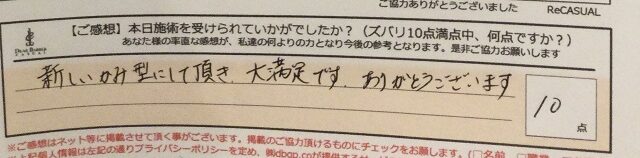 ご協力ありがとうございました
ReCASUAL
【ご感想】本日施術を受けられていかがでしたか？（ズバリ10点満点中、何点ですか？）
あなた様の率直な感想が、私達の何よりの力となり今後の参考となります。是非ご協力お願いします
新しいかみ型にして頂き、大満足です、ありがとうございます
10
点
※ご感想はネット等に掲載させて頂く事がございます。掲載のご協力頂けるものにチェックをお願します。（□名前
個人情報は左記の通りプライバシーポリシーを定め、